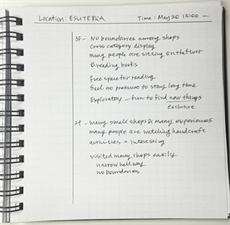 Location: ESLITE
Time: May 20 15:00 —
3F - No boundaries among shops
cross category display
Many people are sitting on the floor
& reading books
Free space for reading
Feel no pressure to stay long time
Exploratory - fun to find new things
exclusive
2F - Many small shops & many experiences
many people are watching handcraft
activities = interesting
visited many shops easily
narrow hallway
no boundaries